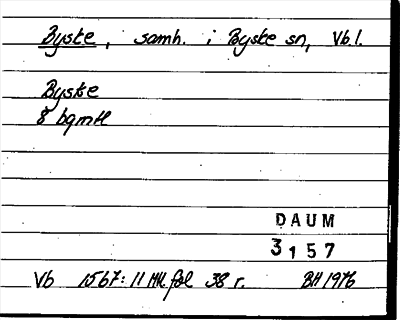 Byske, samh. i Byske sn, Vb.l.
Byske
8 bgmtl
DAUM
3157
Vb 1567:11 Mtl fol 38 r. BH 1976